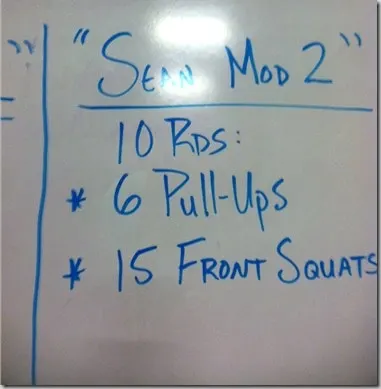 "SEAN MOD 2"
10 RDS:
* 6 Pull-Ups
* 15 FRONT SQUATS